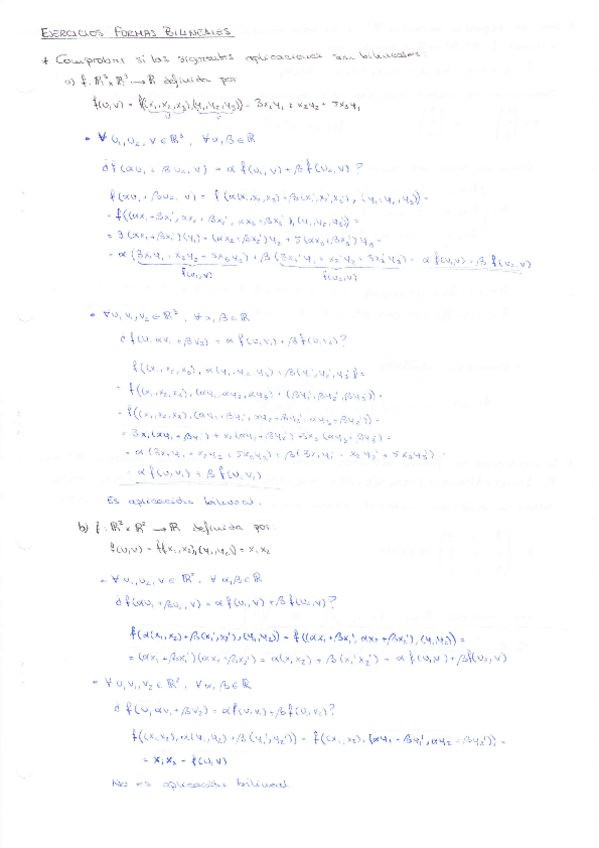 EJERCICIOS FORMAS BILINEALES
* Comprobar si las siguientes aplicaciones son bilineales:
a) f: ℝ³×ℝ³ → ℝ definida por
f(u,v) = f((x₁,x₂,x₃),(y₁,y₂,y₃)) = 3x₁y₁ + x₂y₂ + 5x₃y₃
• ∀ u₁,u₂,v ∈ ℝ³, ∀ α,β ∈ ℝ
¿f(αu₁+βu₂,v) = α f(u₁,v) + β f(u₂,v)?
f(αu₁+βu₂,v) = f(α(x₁,x₂,x₃)+β(x₁',x₂',x₃'), (y₁,y₂,y₃)) =
= f((αx₁+βx₁', αx₂+βx₂', αx₃+βx₃'), (y₁,y₂,y₃)) =
= 3(αx₁+βx₁')(y₁) + (αx₂+βx₂')y₂ + 5(αx₃+βx₃')y₃ =
= α(3x₁y₁+x₂y₂+5x₃y₃) + β(3x₁'y₁+x₂'y₂+5x₃'y₃) = α f(u₁,v) + β f(u₂,v)
f(u₁,v) f(u₂,v)
• ∀ u,v₁,v₂ ∈ ℝ³, ∀ α,β ∈ ℝ
¿f(u,αv₁+βv₂) = α f(u,v₁) + β f(u,v₂)?
f((x₁,x₂,x₃), α(y₁,y₂,y₃)+β(y₁',y₂',y₃')) =
= f((x₁,x₂,x₃),(αy₁,αy₂,αy₃)+(βy₁',βy₂',βy₃')) =
= f((x₁,x₂,x₃),(αy₁+βy₁',αy₂+βy₂',αy₃+βy₃')) =
= 3x₁(αy₁+βy₁') + x₂(αy₂+βy₂') + 5x₃(αy₃+βy₃') =
= α(3x₁y₁+x₂y₂+5x₃y₃) + β(3x₁y₁'+x₂y₂'+5x₃y₃') =
= α f(u,v₁) + β f(u,v₂)
Es aplicación bilineal.
b) f: ℝ²×ℝ² → ℝ definida por:
f(u,v) = f((x₁,x₂),(y₁,y₂)) = x₁x₂
• ∀ u₁,u₂,v ∈ ℝ², ∀ α,β ∈ ℝ
¿f(αu₁+βu₂,v) = α f(u₁,v) + β f(u₂,v)?
f(α(x₁,x₂)+β(x₁',x₂'),(y₁,y₂)) = f((αx₁+βx₁', αx₂+βx₂'),(y₁,y₂)) =
= (αx₁+βx₁')(αx₂+βx₂') = α(x₁x₂) + β(x₁'x₂') = α f(u₁,v) + β f(u₂,v)
• ∀ u,v₁,v₂ ∈ ℝ², ∀ α,β ∈ ℝ
¿f(u,αv₁+βv₂) = α f(u,v₁) + β f(u,v₂)?
f((x₁,x₂),α(y₁,y₂)+β(y₁',y₂')) = f((x₁,x₂),(αy₁+βy₁',αy₂+βy₂')) =
= x₁x₂ = f(u,v)
No es aplicación bilineal